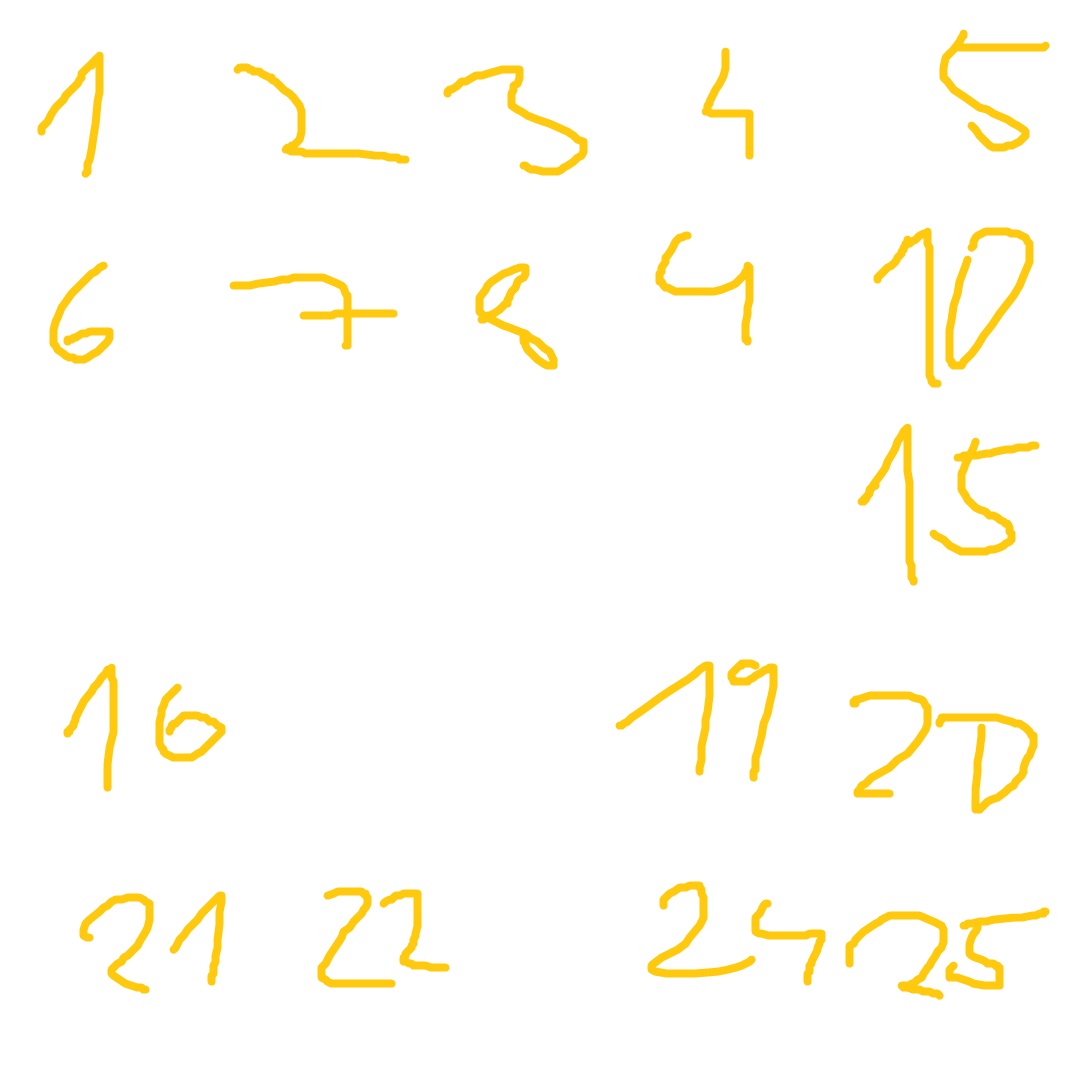 1 2 3 4 5
6 7 8 9 10
15
16 19 20
21 22 24 25